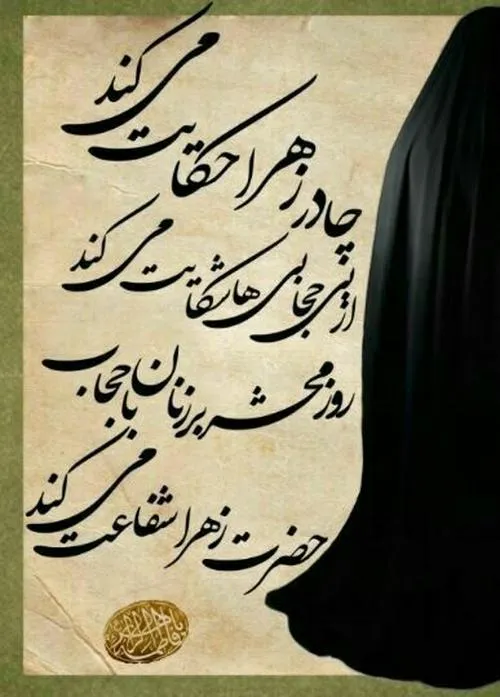 چادر زهرا حکایت می کند
از بی حجابی ها شکایت می کند
روز محشر بر زنان با حجاب
حضرت زهرا شفاعت می کند
یا فاطمة الزهرا